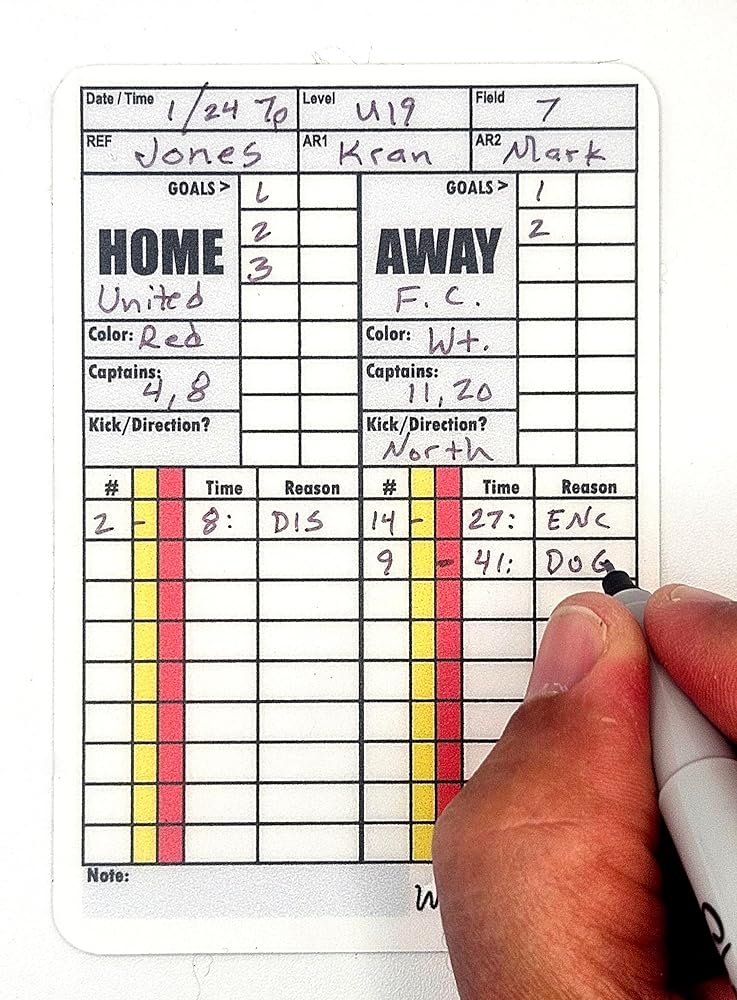 Date / Time 1/24 7p Level U19 Field 7
REF Jones AR1 Kran AR2 Mark
GOALS > 1 GOALS > 1
2 2
HOME 3 AWAY
United F. C.
Color: Red Color: Wt.
Captains: 4, 8 Captains: 11, 20
Kick/Direction? Kick/Direction?
North
# Time Reason # Time Reason
2 - 8: DIS 14 - 27: ENC
9 - 41: DOG
Note: